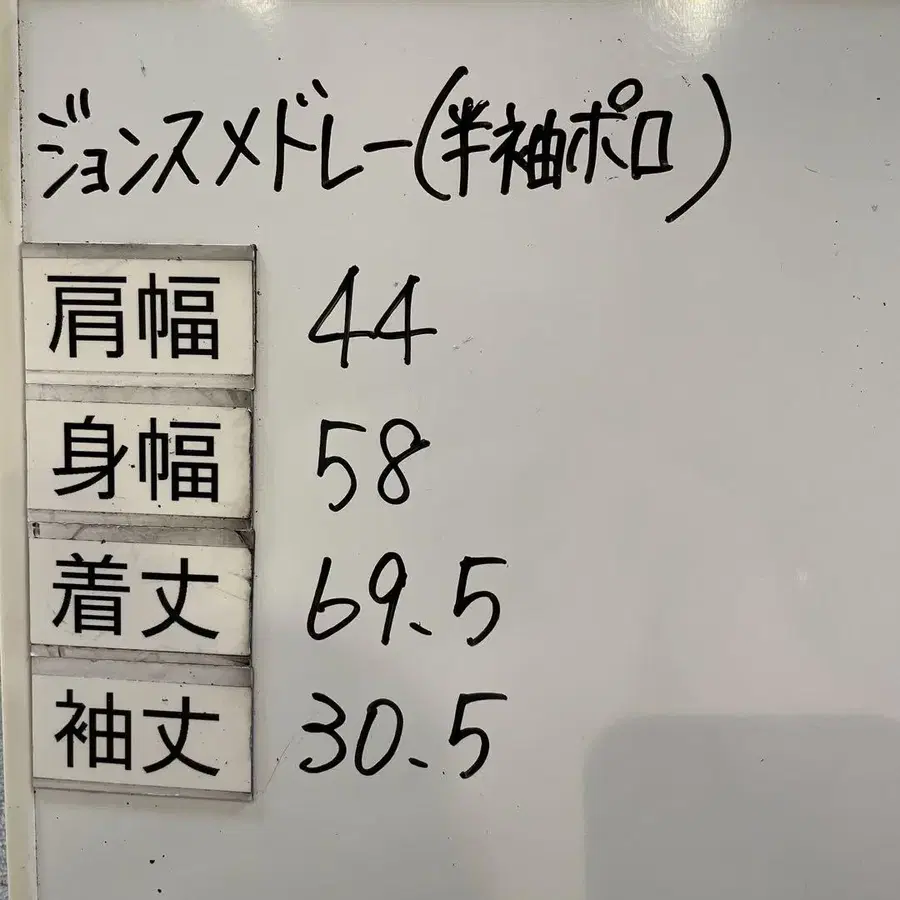 ジョンスメドレー(半袖ポロ)
肩幅 44
身幅 58
着丈 69.5
袖丈 30.5